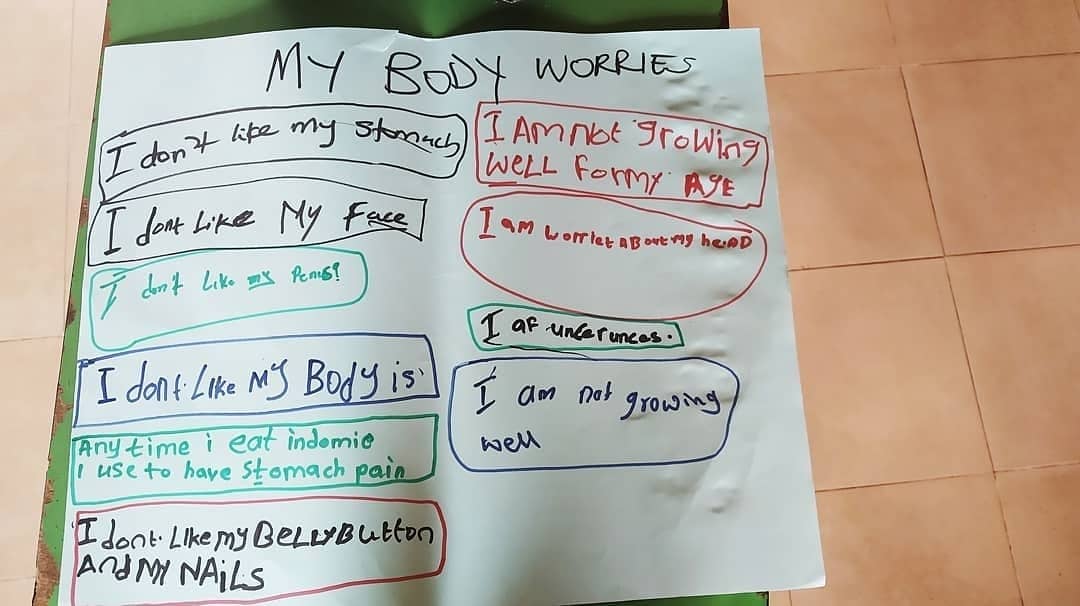 MY BODY WORRIES
I don't like my stomach
I dont Like My Face
I don't Like my Penis?
I dont. Like My Body is
Any time i eat indomie
I use to have stomach pain
I dont. Like my BeLLyButton
And My NAiLS
I Am not growing
WeLL Formy AgE
I am worriet ABout my heAD
I af unferunces.
I am not growing
well